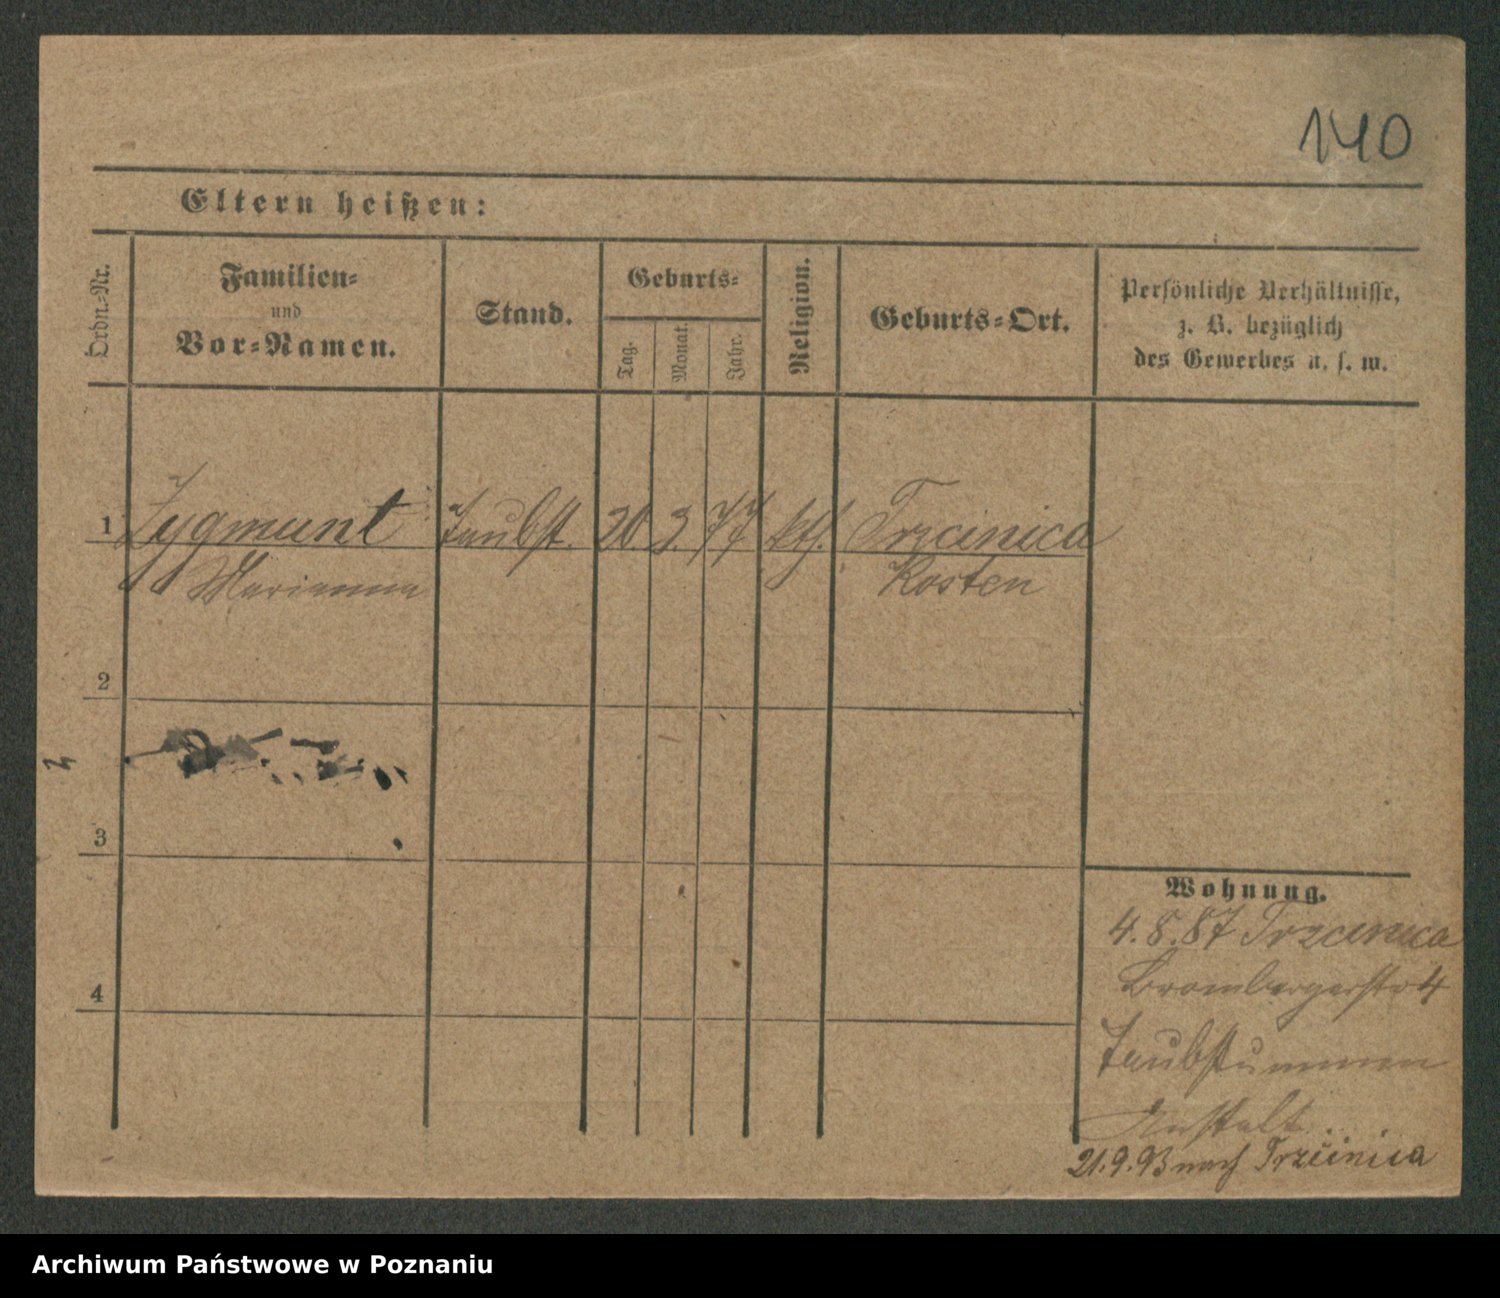 140
Eltern heißen:
Ordn.-Nr.
Familien-
und
Vor-Namen.
Stand.
Geburts-
Tag.
Monat.
Jahr.
Religion.
Geburts-Ort.
Persönliche Verhältnisse,
z. B. bezüglich
des Gewerbes u. s. w.
1 Zygmunt Taubst. 20. 3. 77 kth. Trzcinica
Marianna Kosten
2
3
4
Wohnung.
4. 8. 87 Trzcinica
Brombergerstr 4
Taubstummen
Anstalt
21.9.93 nach Trzcinica
Archiwum Państwowe w Poznaniu